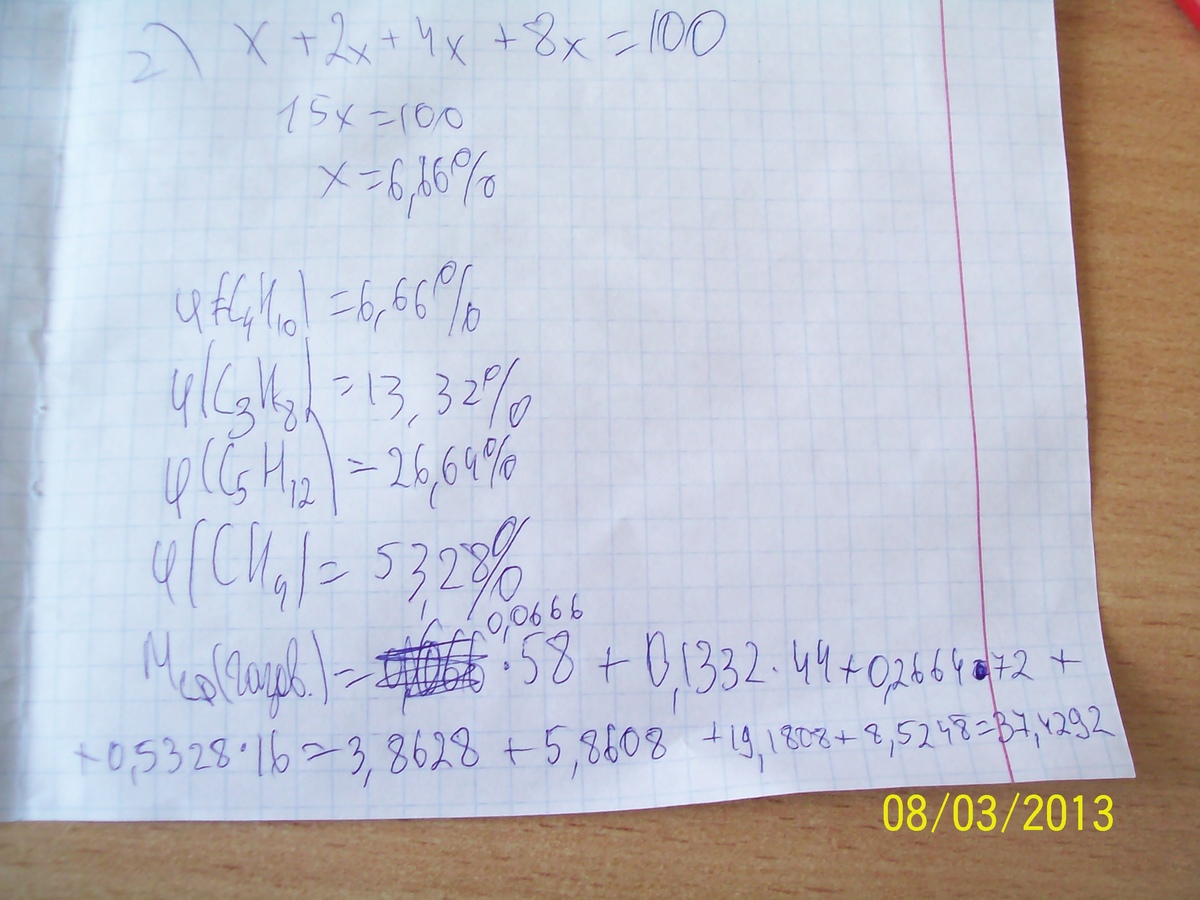 2) x + 2x + 4x + 8x = 100
15x = 100
x = 6,66%
φ(C₄H₁₀) = 6,66%
φ(C₃H₈) = 13,32%
φ(C₅H₁₂) = 26,64%
φ(CH₄) = 53,28%
Mср(газов.) = 0,0666 · 58 + 0,1332 · 44 + 0,2664 · 72 +
+ 0,5328 · 16 = 3,8628 + 5,8608 + 19,1808 + 8,5248 = 37,4292
08/03/2013